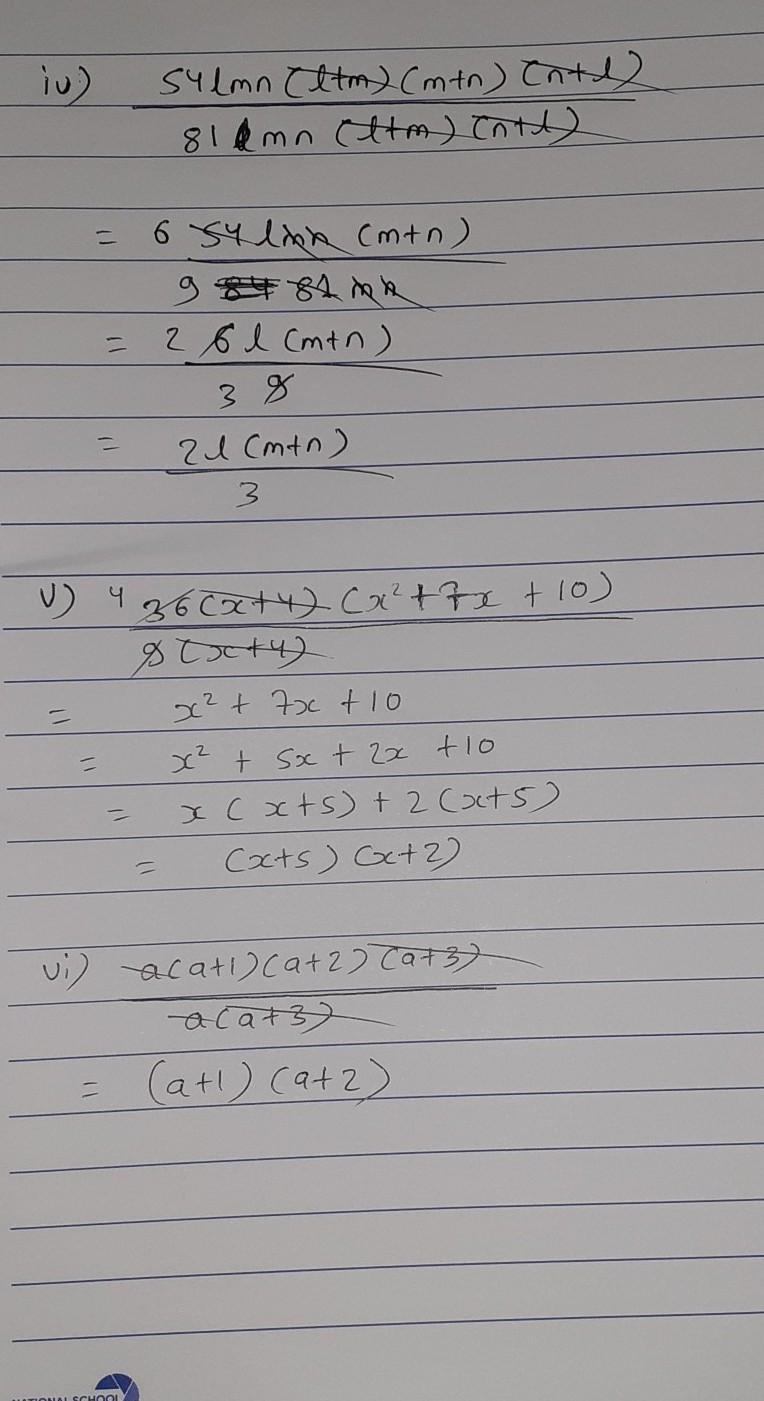 iv) 54lmn (l+m) (m+n) (n+l)
81 lmn (l+m) (n+l)
= 6 54 lmn (m+n)
9 81 mn
= 2 6 l (m+n)
3 9
= 2l (m+n)
3
v) 4 36(x+4) (x²+7x + 10)
9 (x+4)
= x² + 7x + 10
= x² + 5x + 2x + 10
= x ( x+5) + 2 (x+5)
= (x+5) (x+2)
vi) a(a+1)(a+2)(a+3)
a(a+3)
= (a+1) (a+2)
NATIONAL SCHOOL